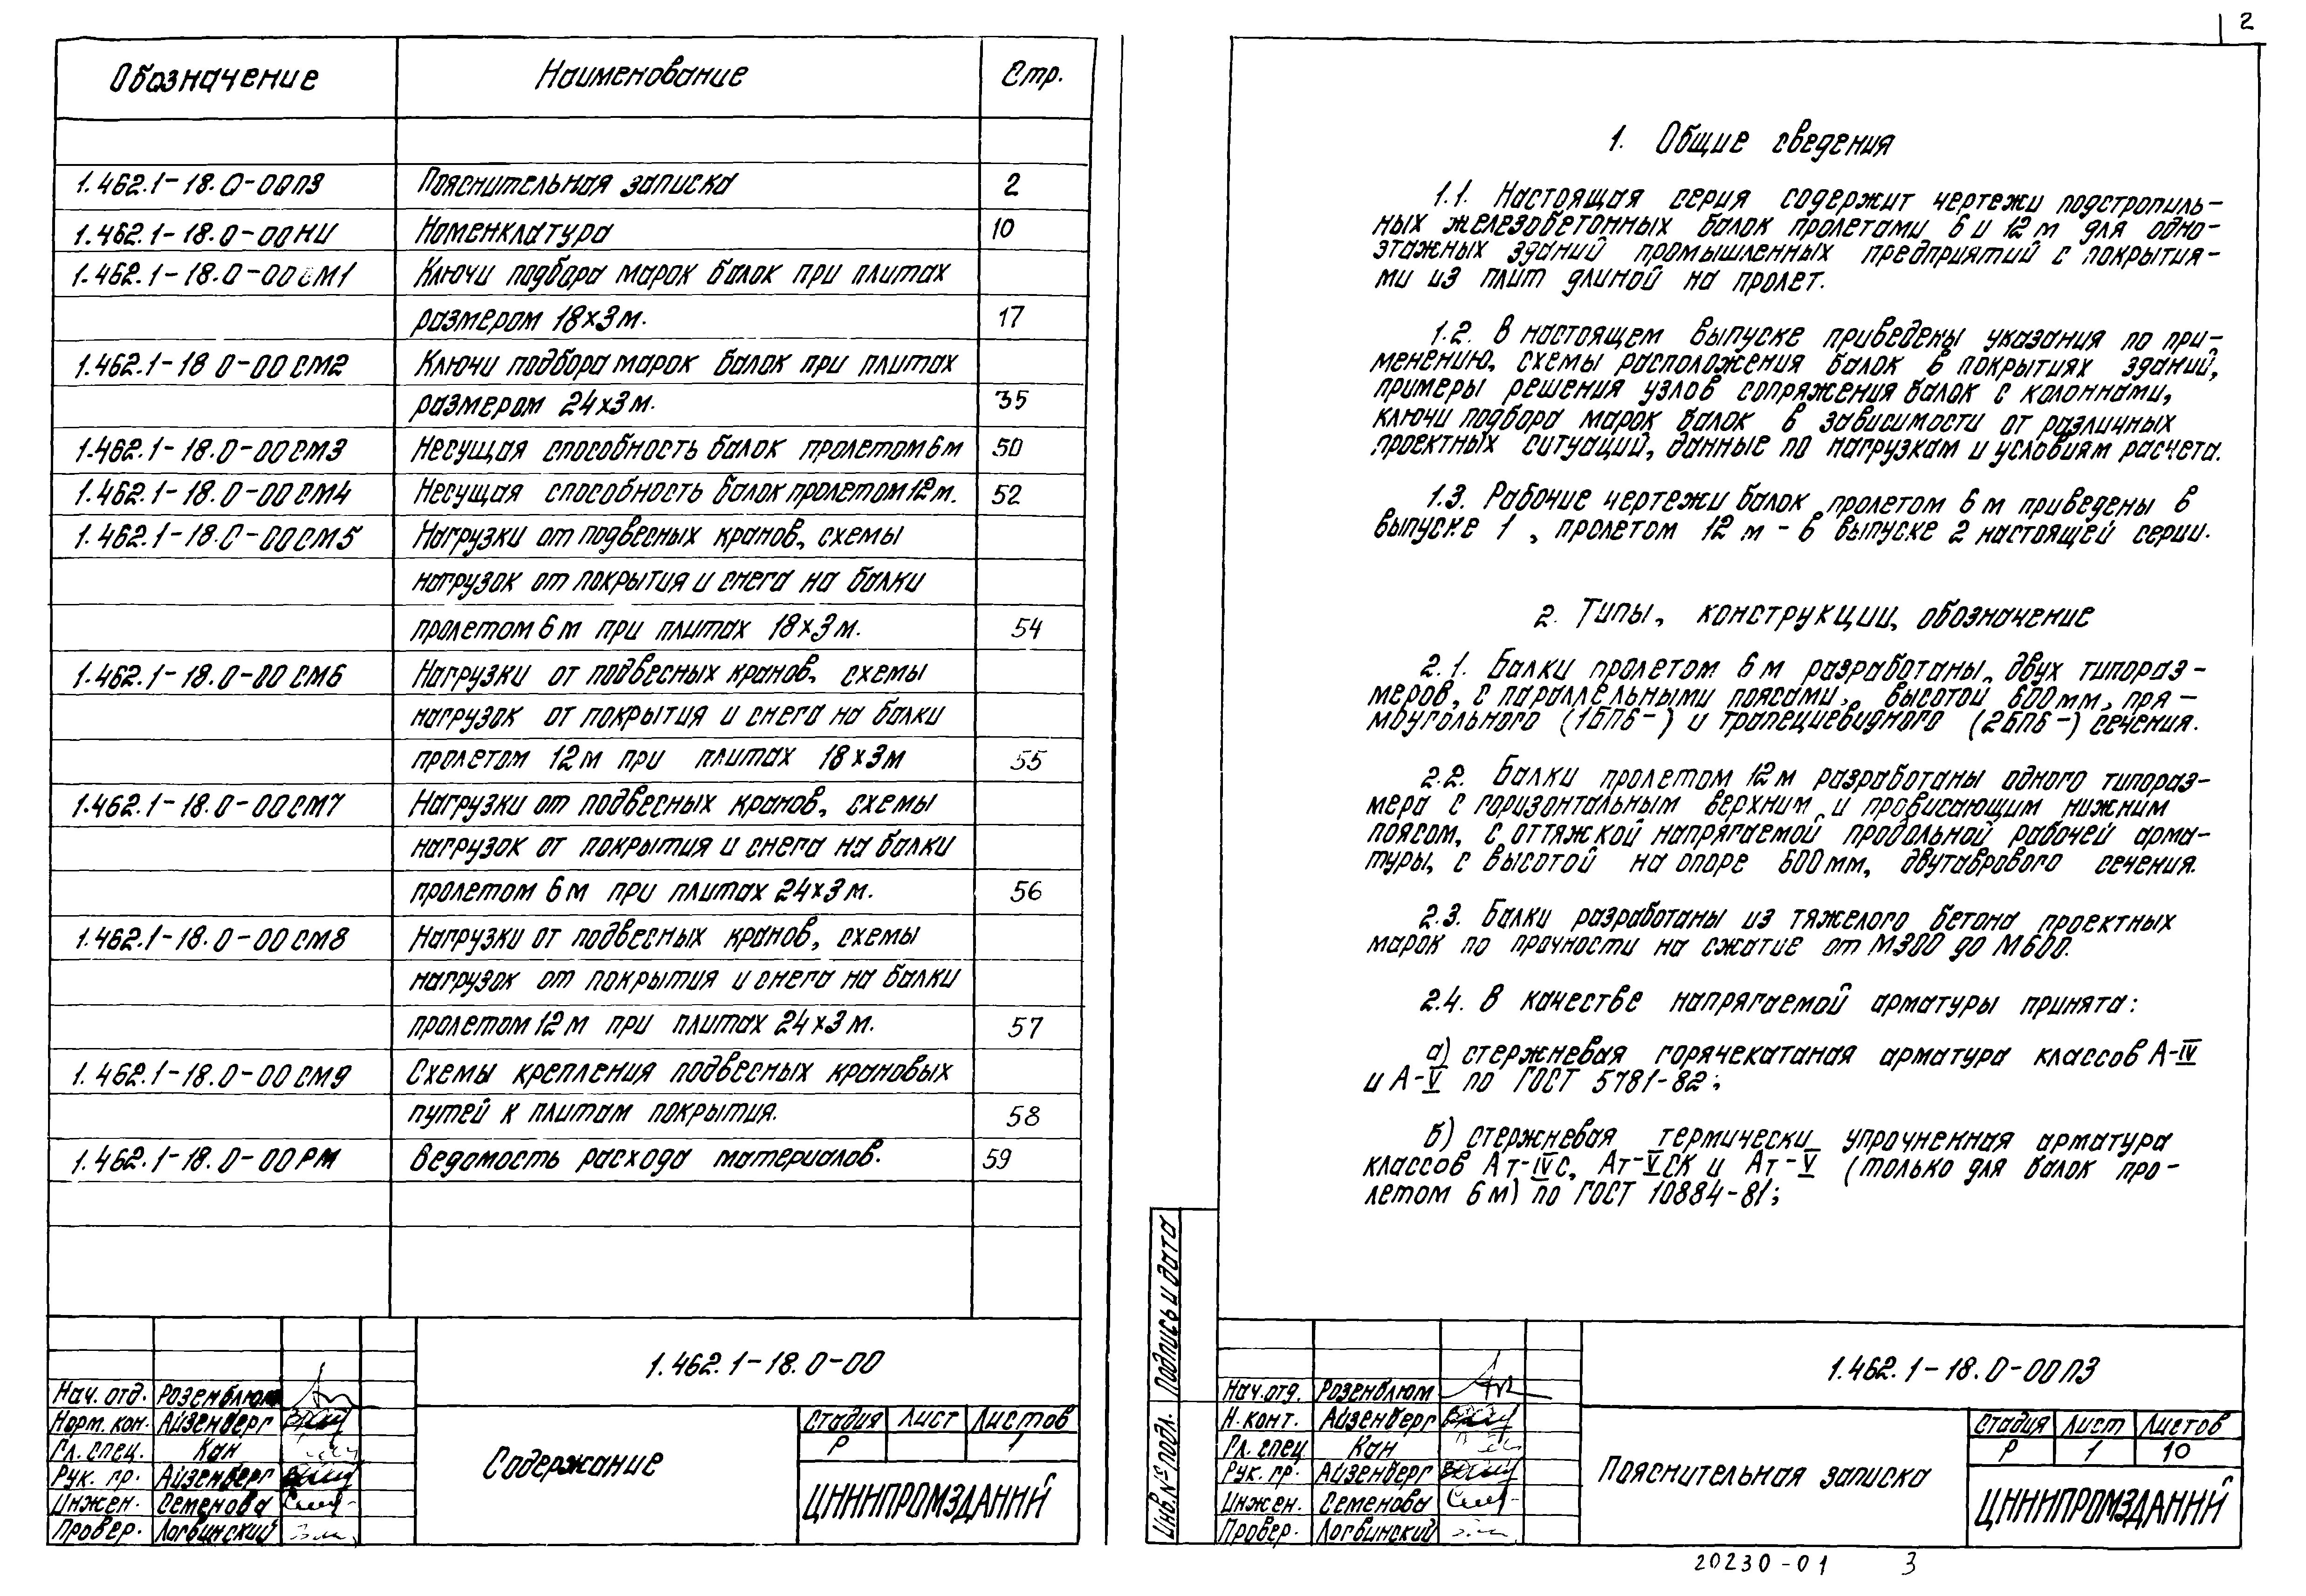 Обозначение Наименование Стр.
1.462.1-18.0-00ПЗ Пояснительная записка 2
1.462.1-18.0-00НИ Номенклатура 10
1.462.1-18.0-00СМ1 Ключи подбора марок балок при плитах
размером 18х3м. 17
1.462.1-18 0-00СМ2 Ключи подбора марок балок при плитах
размером 24х3м. 35
1.462.1-18.0-00СМ3 Несущая способность балок пролетом 6м 50
1.462.1-18.0-00СМ4 Несущая способность балок пролетом 12м. 52
1.462.1-18.0-00СМ5 Нагрузки от подвесных кранов, схемы
нагрузок от покрытия и снега на балки
пролетом 6м при плитах 18х3м. 54
1.462.1-18.0-00СМ6 Нагрузки от подвесных кранов, схемы
нагрузок от покрытия и снега на балки
пролетом 12м при плитах 18х3м 55
1.462.1-18.0-00СМ7 Нагрузки от подвесных кранов, схемы
нагрузок от покрытия и снега на балки
пролетом 6м при плитах 24х3м. 56
1.462.1-18.0-00СМ8 Нагрузки от подвесных кранов, схемы
нагрузок от покрытия и снега на балки
пролетом 12м при плитах 24х3м. 57
1.462.1-18.0-00СМ9 Схемы крепления подвесных крановых
путей к плитам покрытия. 58
1.462.1-18.0-00РМ Ведомость расхода материалов. 59
1.462.1-18.0-00
Нач. отд. Розенблюм
Норм. кон. Айзенберг
Гл. спец. Кан
Рук. гр. Айзенберг
Инжен. Семенова
Провер. Логвинский
Содержание
Стадия Лист Листов
Р 1
ЦНИИПРОМЗДАНИЙ
2
1. Общие сведения
1.1. Настоящая серия содержит чертежи подстропиль-
ных железобетонных балок пролетами 6 и 12 м для одно-
этажных зданий промышленных предприятий с покрытия-
ми из плит длиной на пролет.
1.2. В настоящем выпуске приведены указания по при-
менению, схемы расположения балок в покрытиях зданий,
примеры решения узлов сопряжения балок с колоннами,
ключи подбора марок балок в зависимости от различных
проектных ситуаций, данные по нагрузкам и условиям расчета.
1.3. Рабочие чертежи балок пролетом 6 м приведены в
выпуске 1, пролетом 12 м - в выпуске 2 настоящей серии.
2. Типы, конструкции, обозначение
2.1. Балки пролетом 6 м разработаны двух типораз-
меров, с параллельными поясами, высотой 600мм, пря-
моугольного (1БП6-) и трапециевидного (2БП6-) сечения.
2.2. Балки пролетом 12м разработаны одного типораз-
мера с горизонтальным верхним и провисающим нижним
поясом, с оттяжкой напрягаемой продольной рабочей арма-
туры, с высотой на опоре 600мм, двутаврового сечения.
2.3. Балки разработаны из тяжелого бетона проектных
марок по прочности на сжатие от М300 до М600.
2.4. В качестве напрягаемой арматуры принята:
а) стержневая горячекатаная арматура классов А-IV
и А-V по ГОСТ 5781-82;
б) стержневая термически упрочненная арматура
классов Ат-IVС, Ат-VСК и Ат-V (только для балок про-
летом 6м) по ГОСТ 10884-81;
Подпись и дата
Инв.№ подл.
1.462.1-18.0-00ПЗ
Нач.отд. Розенблюм
Н.конт. Айзенберг
Гл. спец Кан
Рук. гр. Айзенберг
Инжен. Семенова
Провер. Логвинский
Пояснительная записка
Стадия Лист Листов
Р 1 10
ЦНИИПРОМЗДАНИЙ
20230-01 3